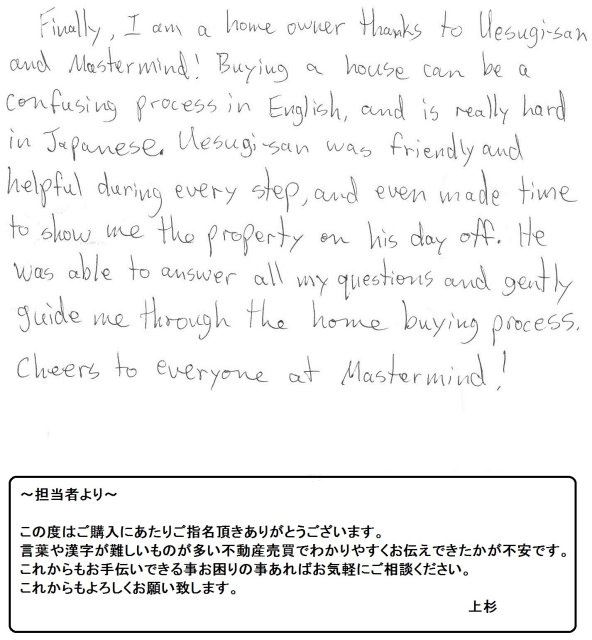 Finally, I am a home owner thanks to Uesugi-san
and Mastermind! Buying a house can be a
confusing process in English, and is really hard
in Japanese. Uesugi-san was friendly and
helpful during every step, and even made time
to show me the property on his day off. He
was able to answer all my questions and gently
guide me through the home buying process.
Cheers to everyone at Mastermind!
～担当者より～
この度はご購入にあたりご指名頂きありがとうございます。
言葉や漢字が難しいものが多い不動産売買でわかりやすくお伝えできたかが不安です。
これからもお手伝いできる事お困りの事あればお気軽にご相談ください。
これからもよろしくお願い致します。
上杉